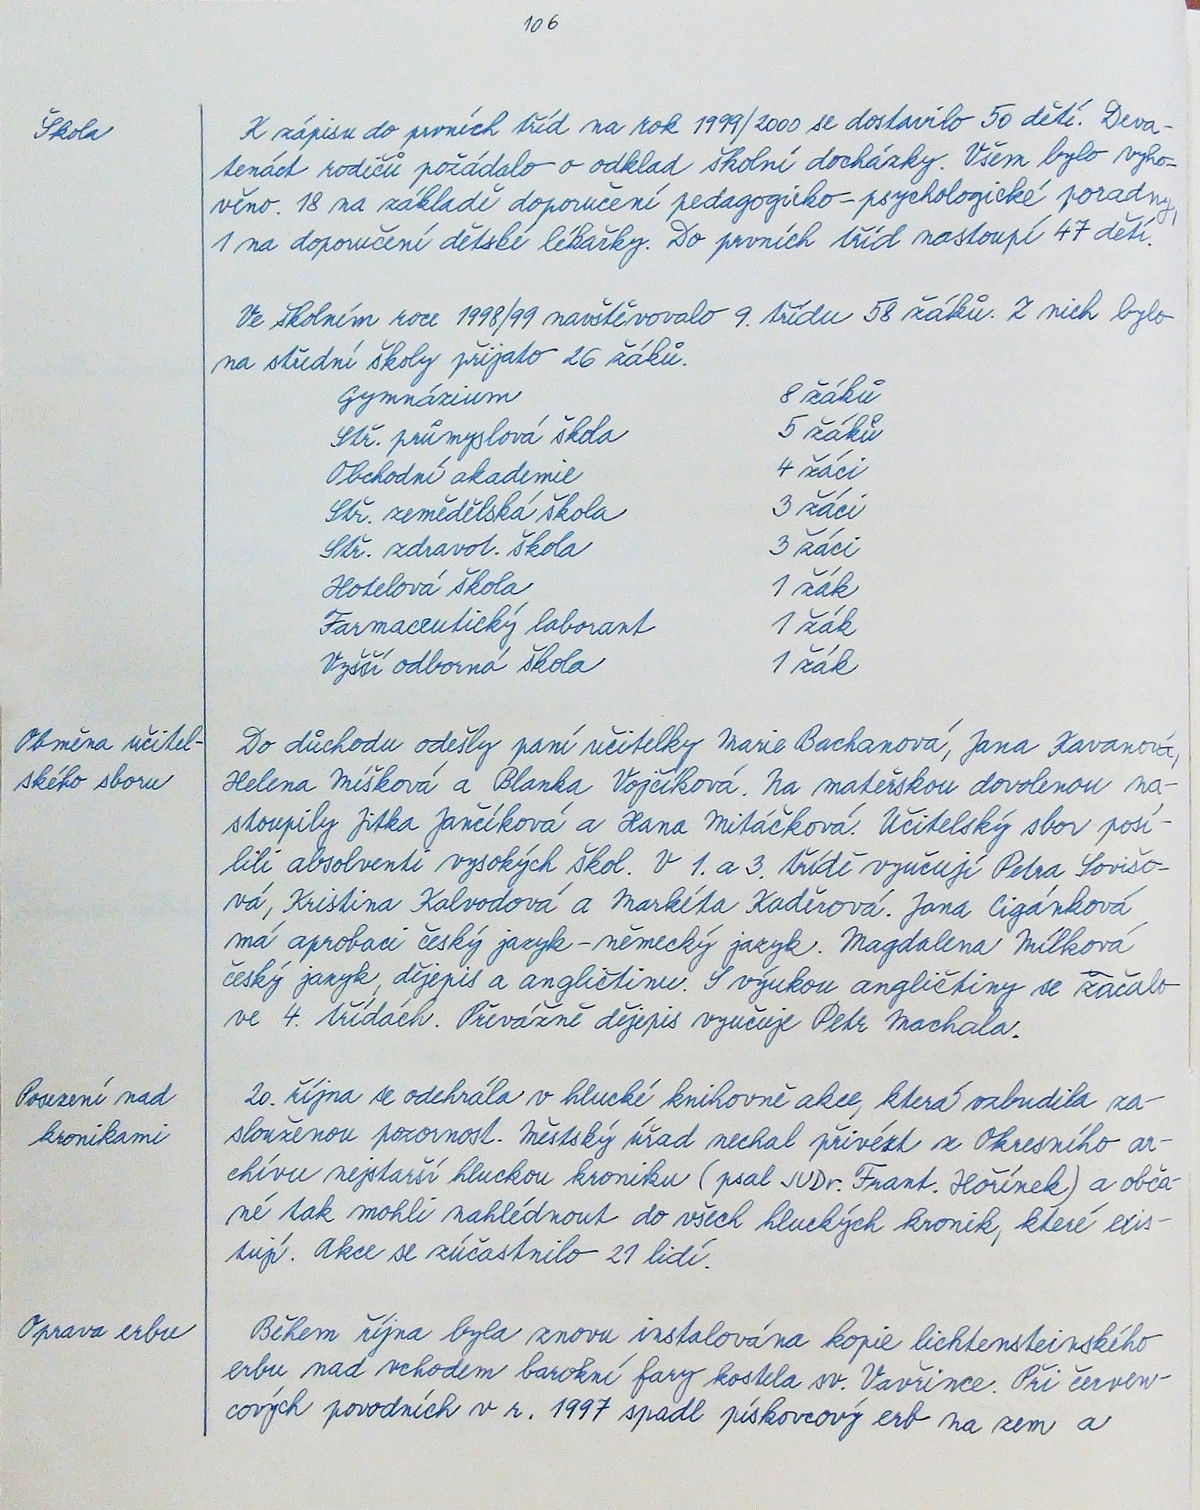 106
Škola
K zápisu do prvních tříd na rok 1999/2000 se dostavilo 50 dětí. Deva-
tenáct rodičů požádalo o odklad školní docházky. Všem bylo vyho-
věno. 18 na základě doporučení pedagogicko-psychologické poradny,
1 na doporučení dětské lékařky. Do prvních tříd nastoupí 47 dětí.
Ve školním roce 1998/99 navštěvovalo 9. třídu 58 žáků. Z nich bylo
na střední školy přijato 26 žáků.
Gymnázium 8 žáků
Stř. průmyslová škola 5 žáků
Obchodní akademie 4 žáci
Stř. zemědělská škola 3 žáci
Stř. zdravot. škola 3 žáci
Hotelová škola 1 žák
Farmaceutický laborant 1 žák
Vyšší odborná škola 1 žák
Obměna učitel-
ského sboru
Do důchodu odešly paní učitelky Marie Bachanová, Jana Kavanová,
Helena Míšková a Blanka Vojčíková. Na mateřskou dovolenou na-
stoupily Jitka Jančíková a Hana Mitáčková. Učitelský sbor posí-
lili absolventi vysokých škol. V 1. a 3. třídě vyučují Petra Sovišo-
vá, Kristina Kalvodová a Markéta Kuděrová. Jana Cigánková
má aprobaci český jazyk-německý jazyk. Magdalena Mílková
český jazyk, dějepis a angličtinu. S výukou angličtiny se začalo
ve 4. třídách. Převážně dějepis vyučuje Petr Machala.
Posezení nad
kronikami
20. října se odehrála v hlucké knihovně akce, která vzbudila za-
slouženou pozornost. Městský úřad nechal přivézt z Okresního ar-
chívu nejstarší hluckou kroniku (psal JUDr. Frant. Hořínek) a obča-
né tak mohli nahlédnout do všech hluckých kronik, které exis-
tují. Akce se zúčastnilo 21 lidí.
Oprava erbu
Během října byla znovu instalována kopie lichtensteinského
erbu nad vchodem barokní fary kostela sv. Vavřince. Při červen-
cových povodních v r. 1997 spadl pískovcový erb na zem a